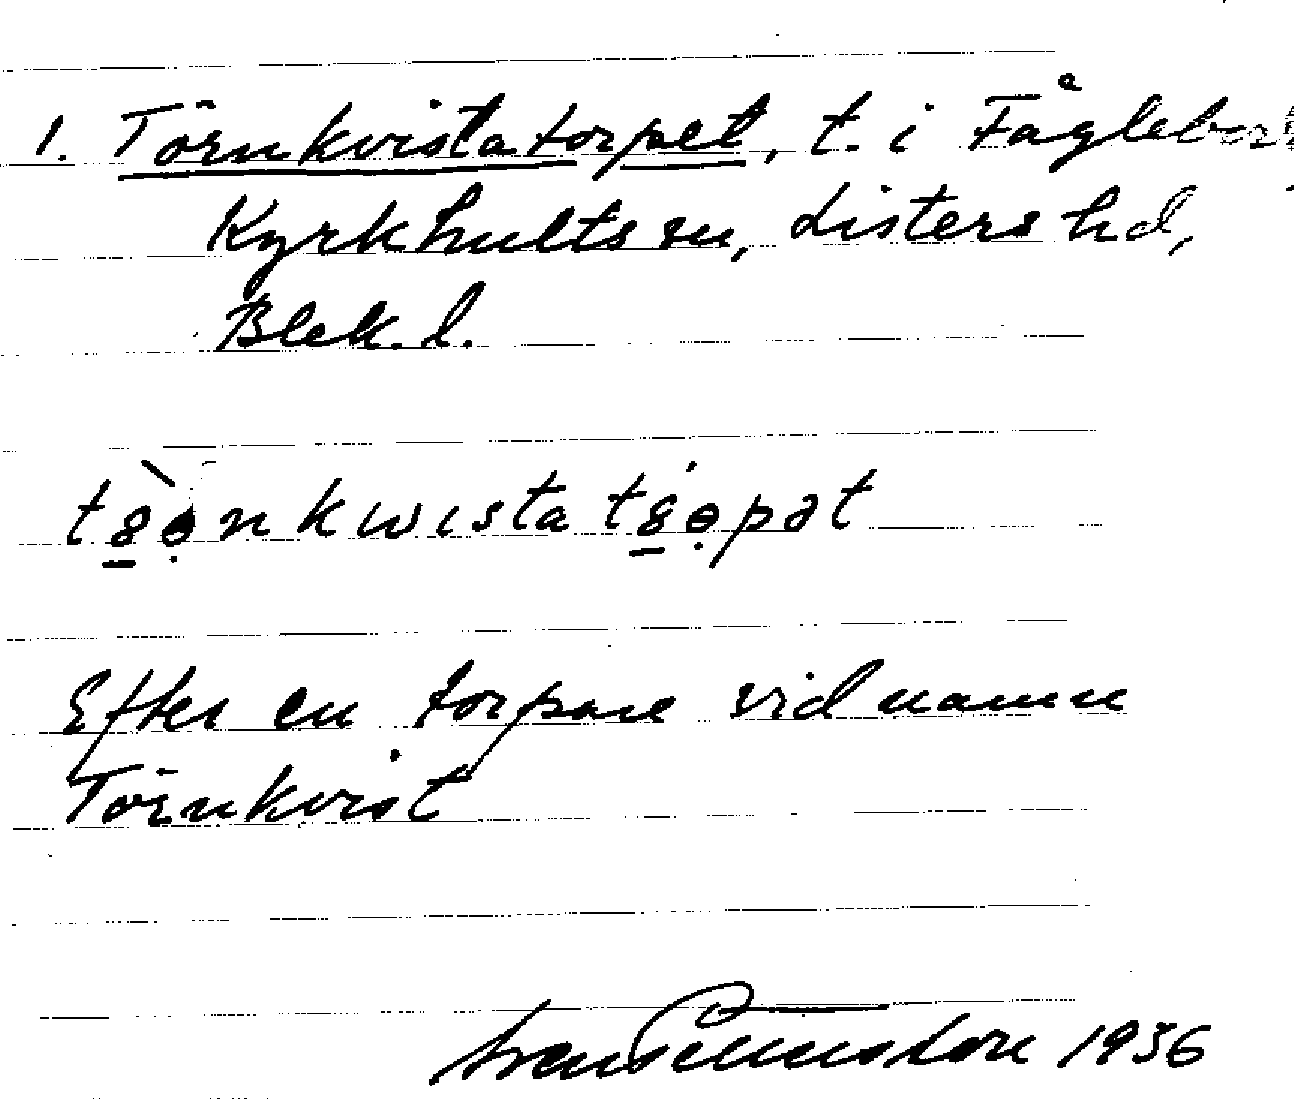 1. Törnkvistatorpet, t. i Fåglebo
Kyrkhults sn, Listers hd,
Blek. l.
Efter en torpare vid namn
Törnkvist
1936